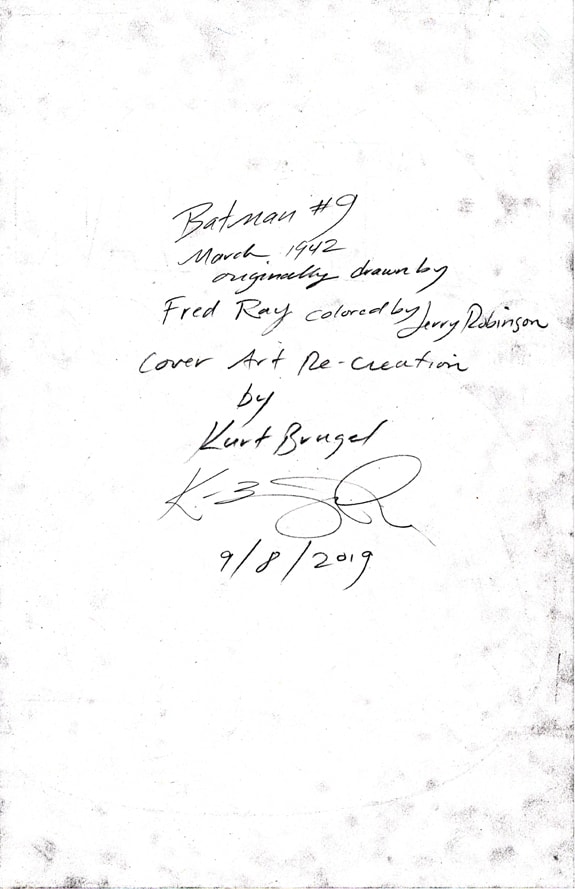 Batman #9
March 1942
originally drawn by
Fred Ray colored by Jerry Robinson
Cover Art Re-creation
by
Kurt Brugel
9/8/2019